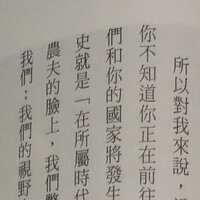 所以對我來說，
你不知道你正在前往
們和你的國家將發生
史就是「在所屬時代
農夫的臉上，我們
我們：我們的視野